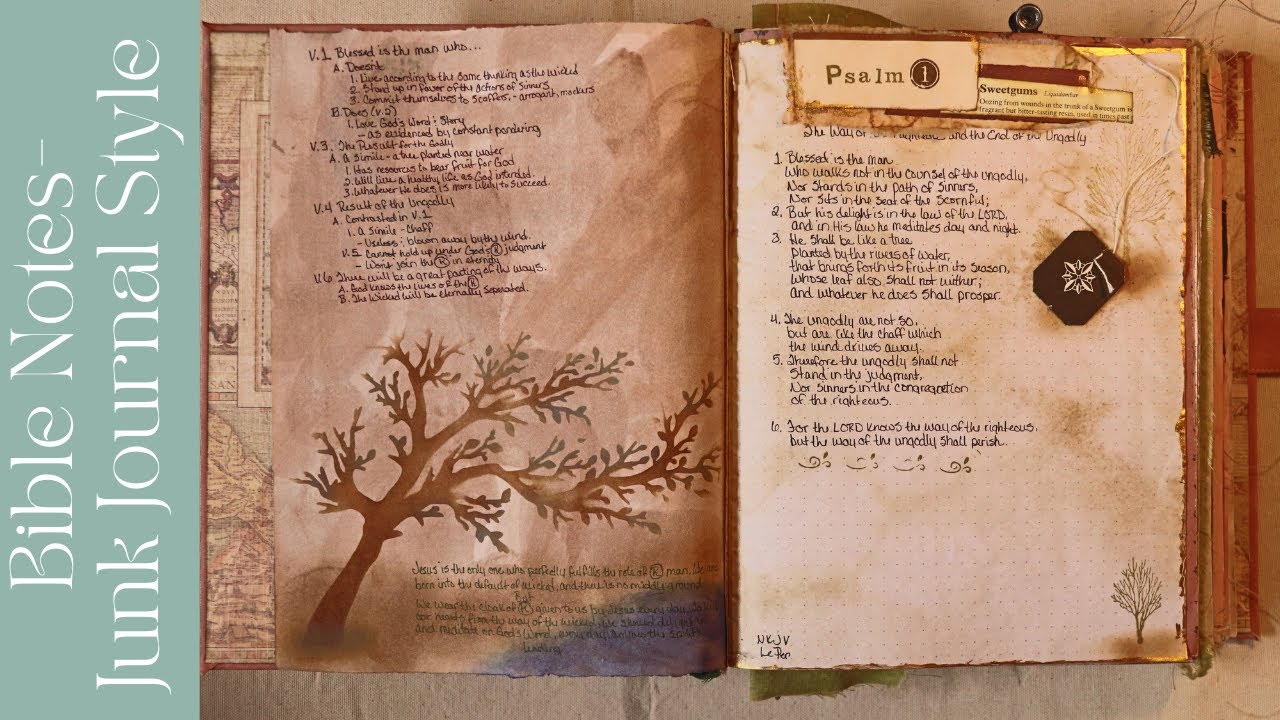 Bible Notes-
Junk Journal Style
V.1 Blessed is the man who...
A. Doesn't
1. Live according to the same thinking as the wicked
2. Stand up in favor of the actions of Sinners
3. Commit themselves to scoffers, - arrogant, mockers
B. Does (v.2)
1. Love God's Word: Story
- as evidenced by constant pondering
V.3. The Result for the Godly
A. a Simile - a tree planted near water
1. Has resources to bear fruit for God
2. Will live a healthy life as God intended.
3. Whatever he does is more likely to succeed.
V.4 Result of the Ungodly
A. Contrasted in V.1
1. a Simile - Chaff
- Useless: blown away by the wind.
V.5 Cannot hold up under God's (R) judgment
- Won't join the (R) in eternity
V.6 There will be a great parting of the ways.
A. God knows the lives of the (R)
B. The Wicked will be eternally Seperated.
Jesus is the only one who perfectly fulfills the role of (R) man. We are
born into the default of wicked, and there is no middle ground.
But
We wear the cloak of (R) given to us by Jesus every day.
away from the way of the wicked. We should delight in
and meditate on God's Word, every day,
leading
Psalm 1
Sweetgums Liquidambar
Oozing from wounds in the trunk of a Sweetgum is
fragrant but bitter-tasting resin, used in times past
The Way of the and the End of the Ungodly
1. Blessed is the man
Who walks not in the counsel of the ungodly,
Nor stands in the path of sinners,
Nor sits in the seat of the scornful;
2. But his delight is in the law of the LORD,
and in His law he meditates day and night.
3. He shall be like a tree
planted by the rivers of water,
that brings forth its fruit in its season,
whose leaf also shall not wither;
and whatever he does shall prosper.
4. The ungodly are not so,
but are like the chaff which
the wind drives away.
5. Therefore the ungodly shall not
Stand in the judgment,
Nor sinners in the congregation
of the righteous.
6. For the LORD knows the way of the righteous
but the way of the ungodly shall perish.
NKJV
Le Pen